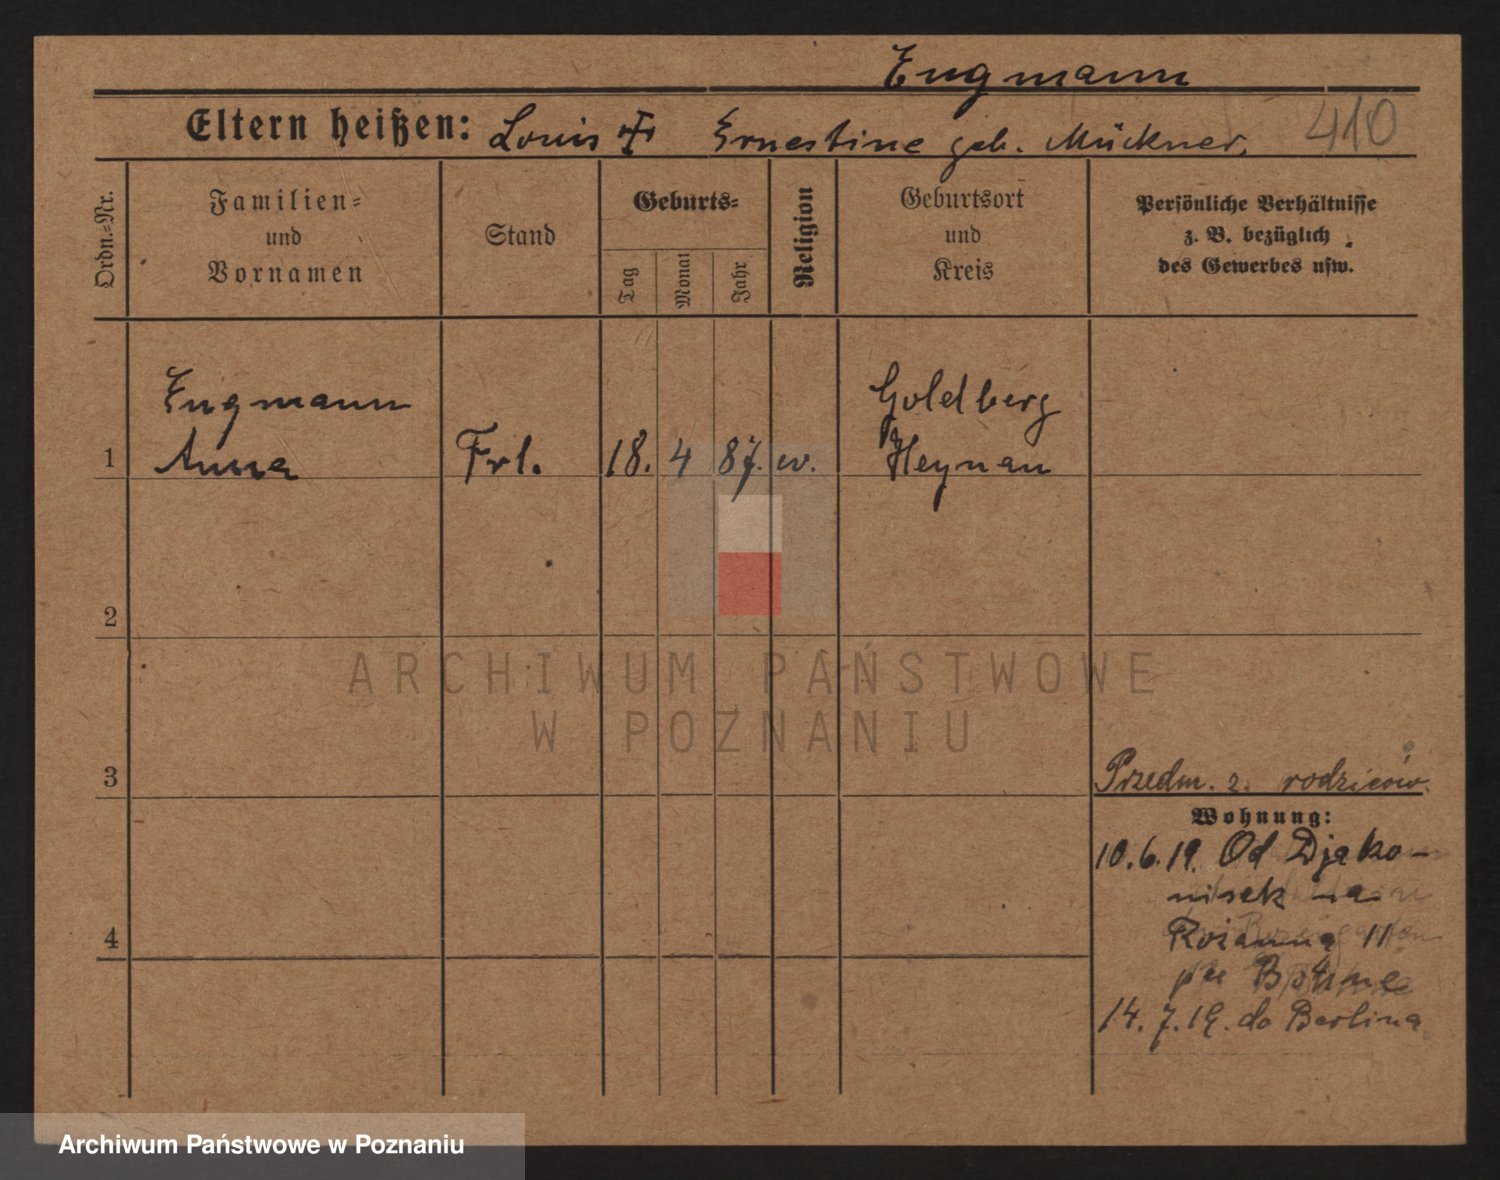 Engmann
Eltern heißen: Louis ✝ Ernestine geb. Mückner. 410
Ordn.=Nr.
Familien=
und
Vornamen
Stand
Geburts=
Tag
Monat
Jahr
Religion
Geburtsort
und
Kreis
Persönliche Verhältnisse
z. B. bezüglich
des Gewerbes usw.
Engmann
Goldberg
1 Anna Frl. 18. 4 87. ev. Heynau
2
ARCHIWUM PAŃSTWOWE
W POZNANIU
3
Przedm. z. rodziców.
Wohnung:
10.6.19. Od Djako-
nisek na
4
11
14.7.19. do Berlina
Archiwum Państwowe w Poznaniu